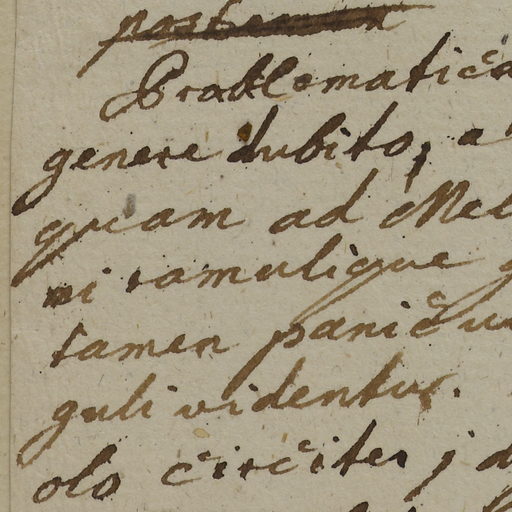 Problematica
genere dubito, a
quam ad Mel
ni ramulique
tamen panicu
guli videntur.
olo circiter, d